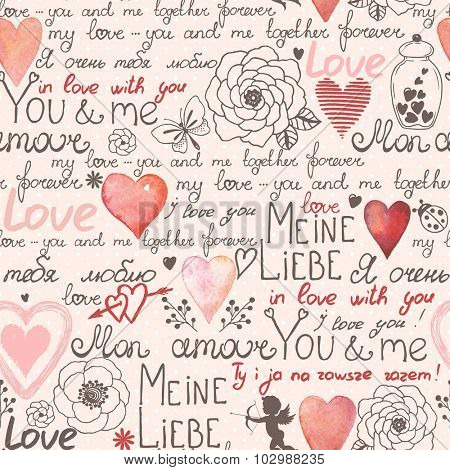 my love ... you and me together forever
my love ... you and me together forever
Я очень тебя люблю Love
in love with you
You & me
amour Mon am
my love ... you and me together forever
forever my love ... you and me together forever
Love I love you love
love ... you and me together forever MEINE my
LIEBE Я очень
тебя люблю
love in love with you
I love you!
Mon amour You & me
Ty i ja na zawsze razem!
MEINE
LIEBE
Love
BIGSTOCK
Image ID: 102988235
bigstock.com